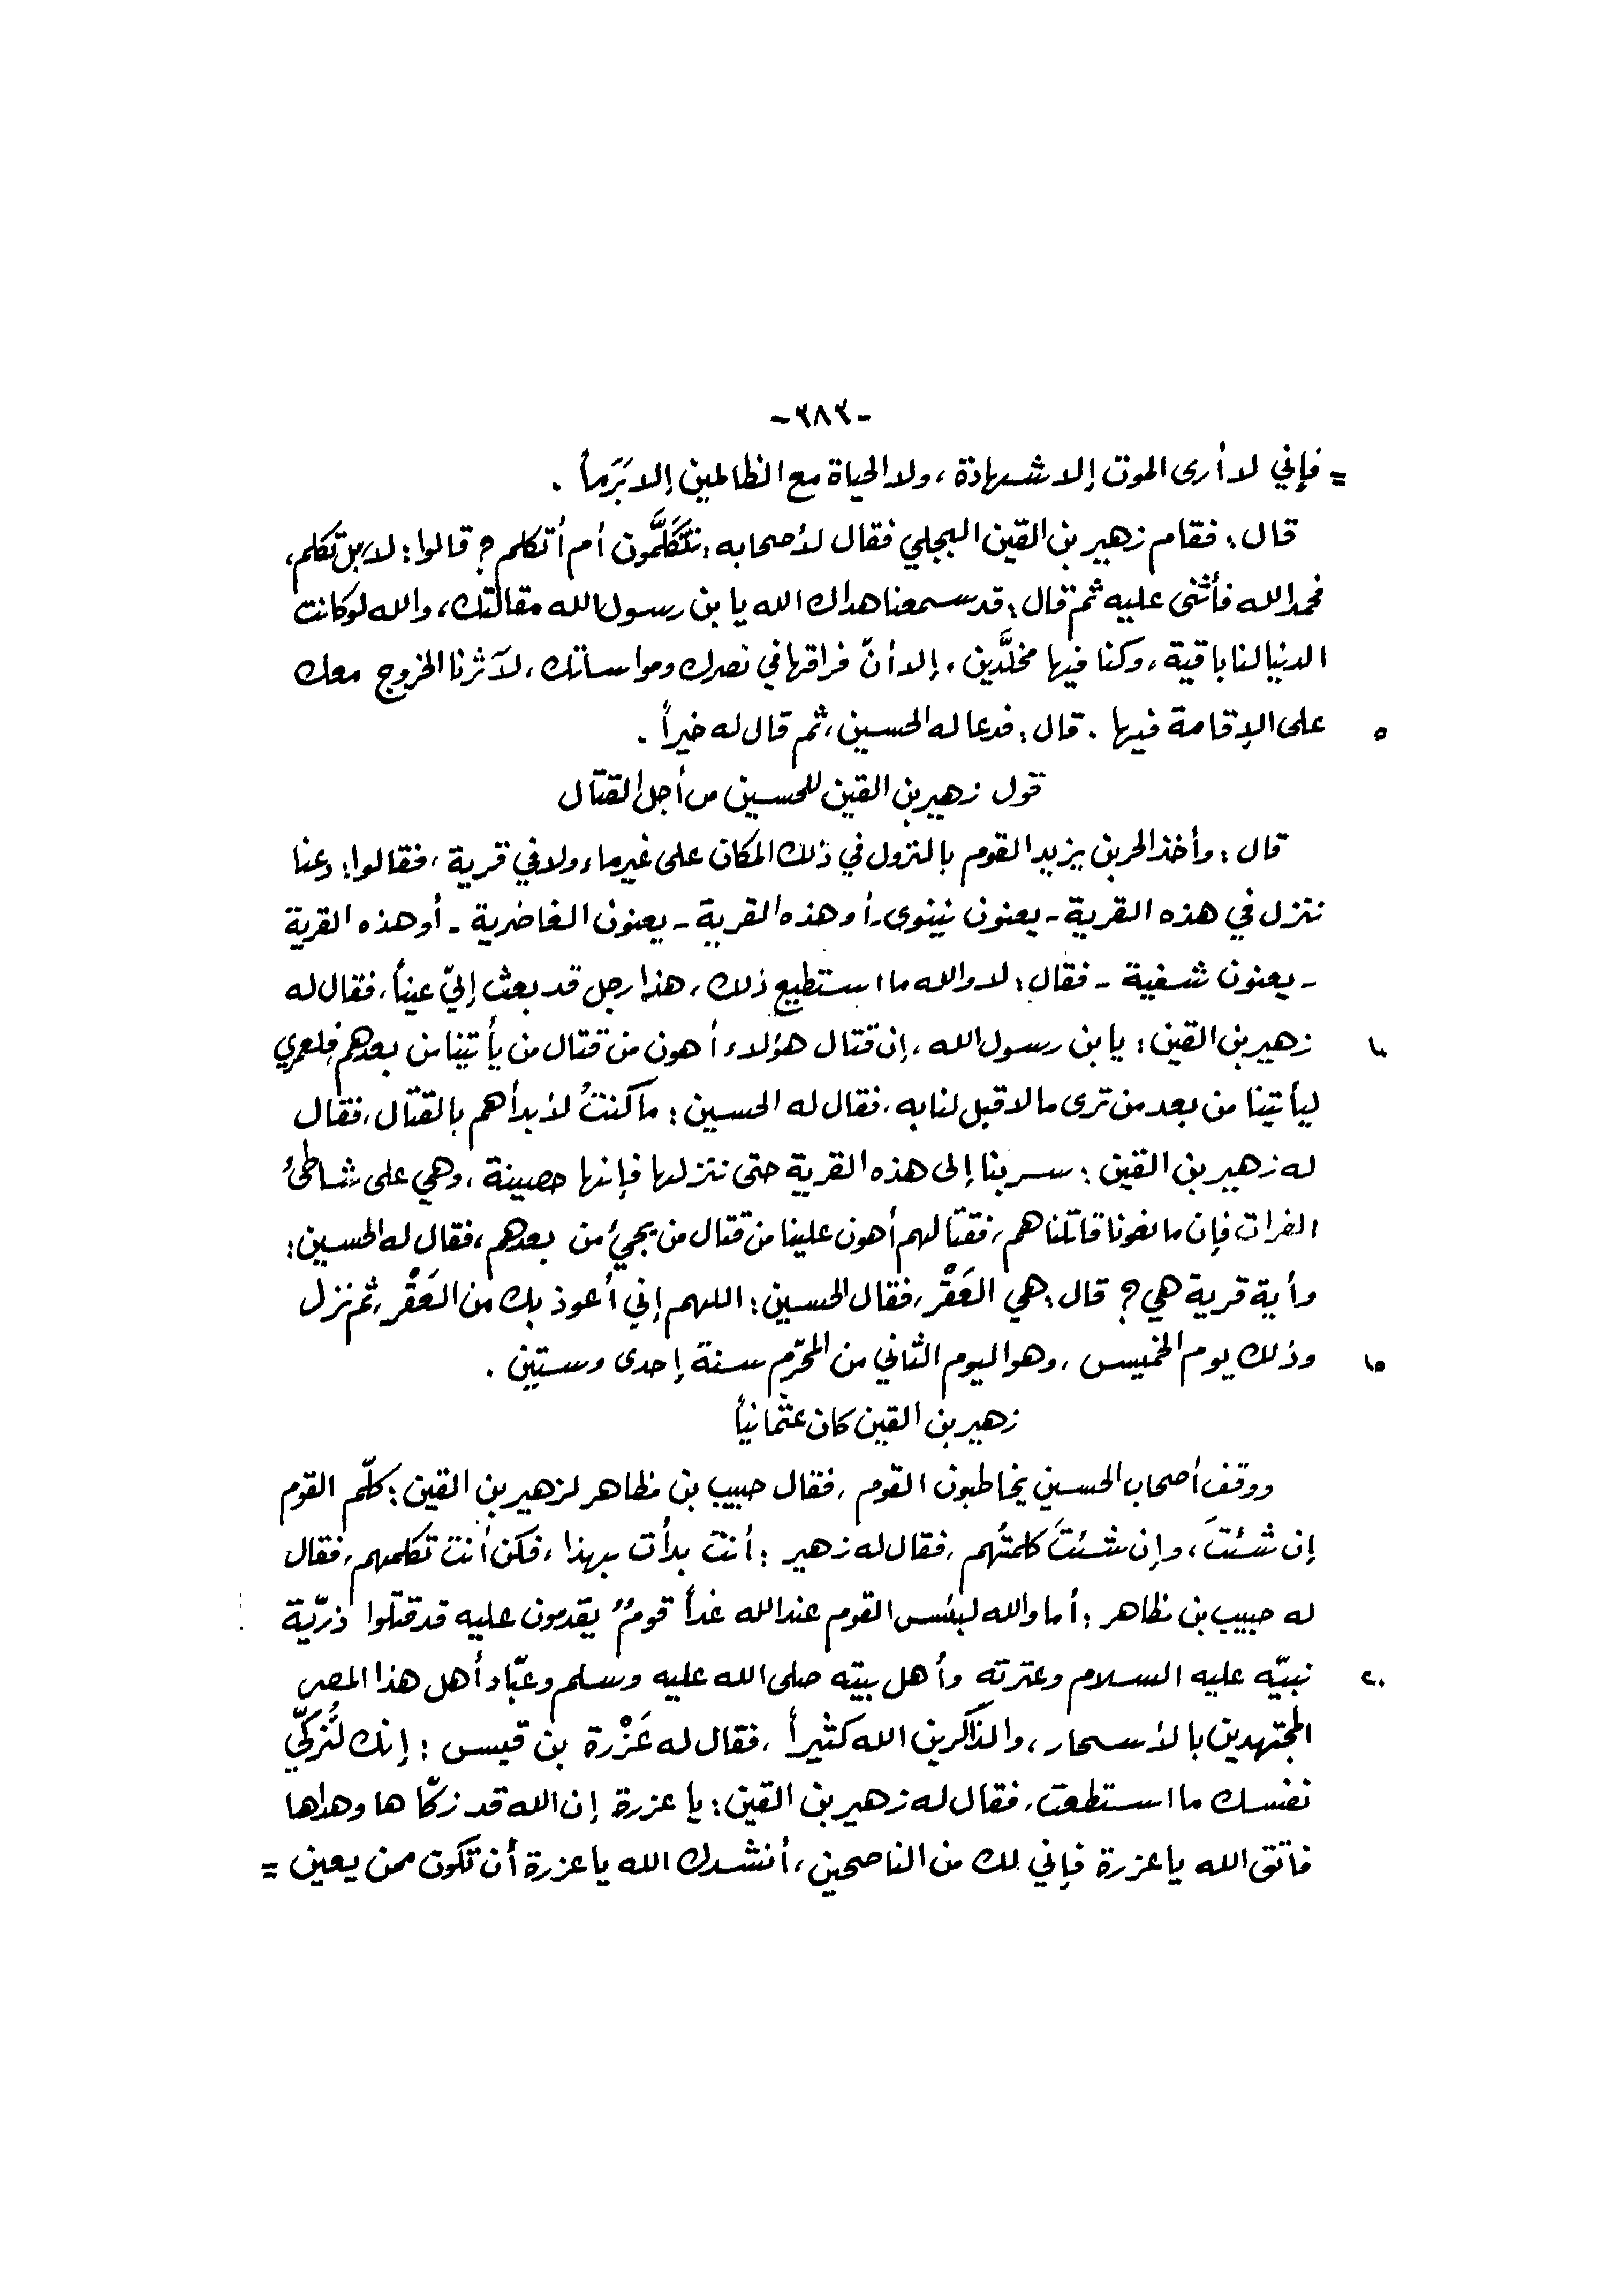 -٣٨٣-
= فإني لا أرى الموت إلا شهادة، ولا الحياة مع الظالمين إلا بَرَماً .
قال: فقام زهير بن القين البجلي فقال لأصحابه: تتكَلَّمون أم أتكلم؟ قالوا: لا، بل تكلم،
فحمد الله فأثنى عليه ثم قال: قد سمعنا هداك الله يا بن رسول الله مقالتك، والله لو كانت
الدنيا لنا باقية، وكنا فيها مخلَّدين، إلا أنّ فراقها في نصرك ومواساتك، لآثرنا الخروج معك
٥ على الإقامة فيها . قال: فدعا له الحسين، ثم قال له خيراً .
قول زهير بن القين للحسين من أجل القتال
قال: وأخذ الحر بن يزيد القوم بالنزول في ذلك المكان على غير ماء ولا في قرية، فقالوا: دعنا
ننزل في هذه القرية - يعنون نينوى - أو هذه القرية - يعنون الغاضرية - أو هذه القرية
- يعنون شفية - فقال: لا والله ما استطيع ذلك، هذا رجل قد بعث إليّ عيناً، فقال له
١٠ زهير بن القين: يا بن رسول الله، إن قتال هؤلاء أهون من قتال من يأتينا من بعدهم، فلعمري
ليأتينا من بعد من ترى ما لا قبل لنا به، فقال له الحسين: ما كنتُ لأبدأهم بالقتال، فقال
له زهير بن القين: سر بنا إلى هذه القرية حتى ننزلها فإنها حصينة، وهي على شاطئ
الفرات فإن مانعونا قاتلناهم، فقتالهم أهون علينا من قتال من يجيءُ من بعدهم، فقال له الحسين:
وأية قرية هي؟ قال: هي العَقْر، فقال الحسين: اللهم إني أعوذ بك من العَقْر، ثم نزل
١٥ وذلك يوم الخميس، وهو اليوم الثاني من المحرّم سنة إحدى وستين .
زهير بن القين كان عثمانياً
ووقف أصحاب الحسين يخاطبون القوم، فقال حبيب بن مظاهر لزهير بن القين: كلّم القوم
إن شئتَ، وإن شئتَ كلمتُهم، فقال له زهير: أنت بدأت بهذا، فكن أنت تكلمهم، فقال
له حبيب بن مظاهر: أما والله لبئس القوم عند الله غداً قومٌ يقدمون عليه قد قتلوا ذرّية
٢٠ نبيّه عليه السلام وعترته وأهل بيته صلى الله عليه وسلم وعبّاد أهل هذا المصر
المجتهدين بالأسحار، والذاكرين الله كثيراً، فقال له عَزْرة بن قيس: إنك لتُزكّي
نفسك ما استطعت، فقال له زهير بن القين: يا عزرة إن الله قد زكّاها وهداها
فاتق الله يا عزرة فإني لك من الناصحين، أنشدك الله يا عزرة أن تكون ممن يعين =